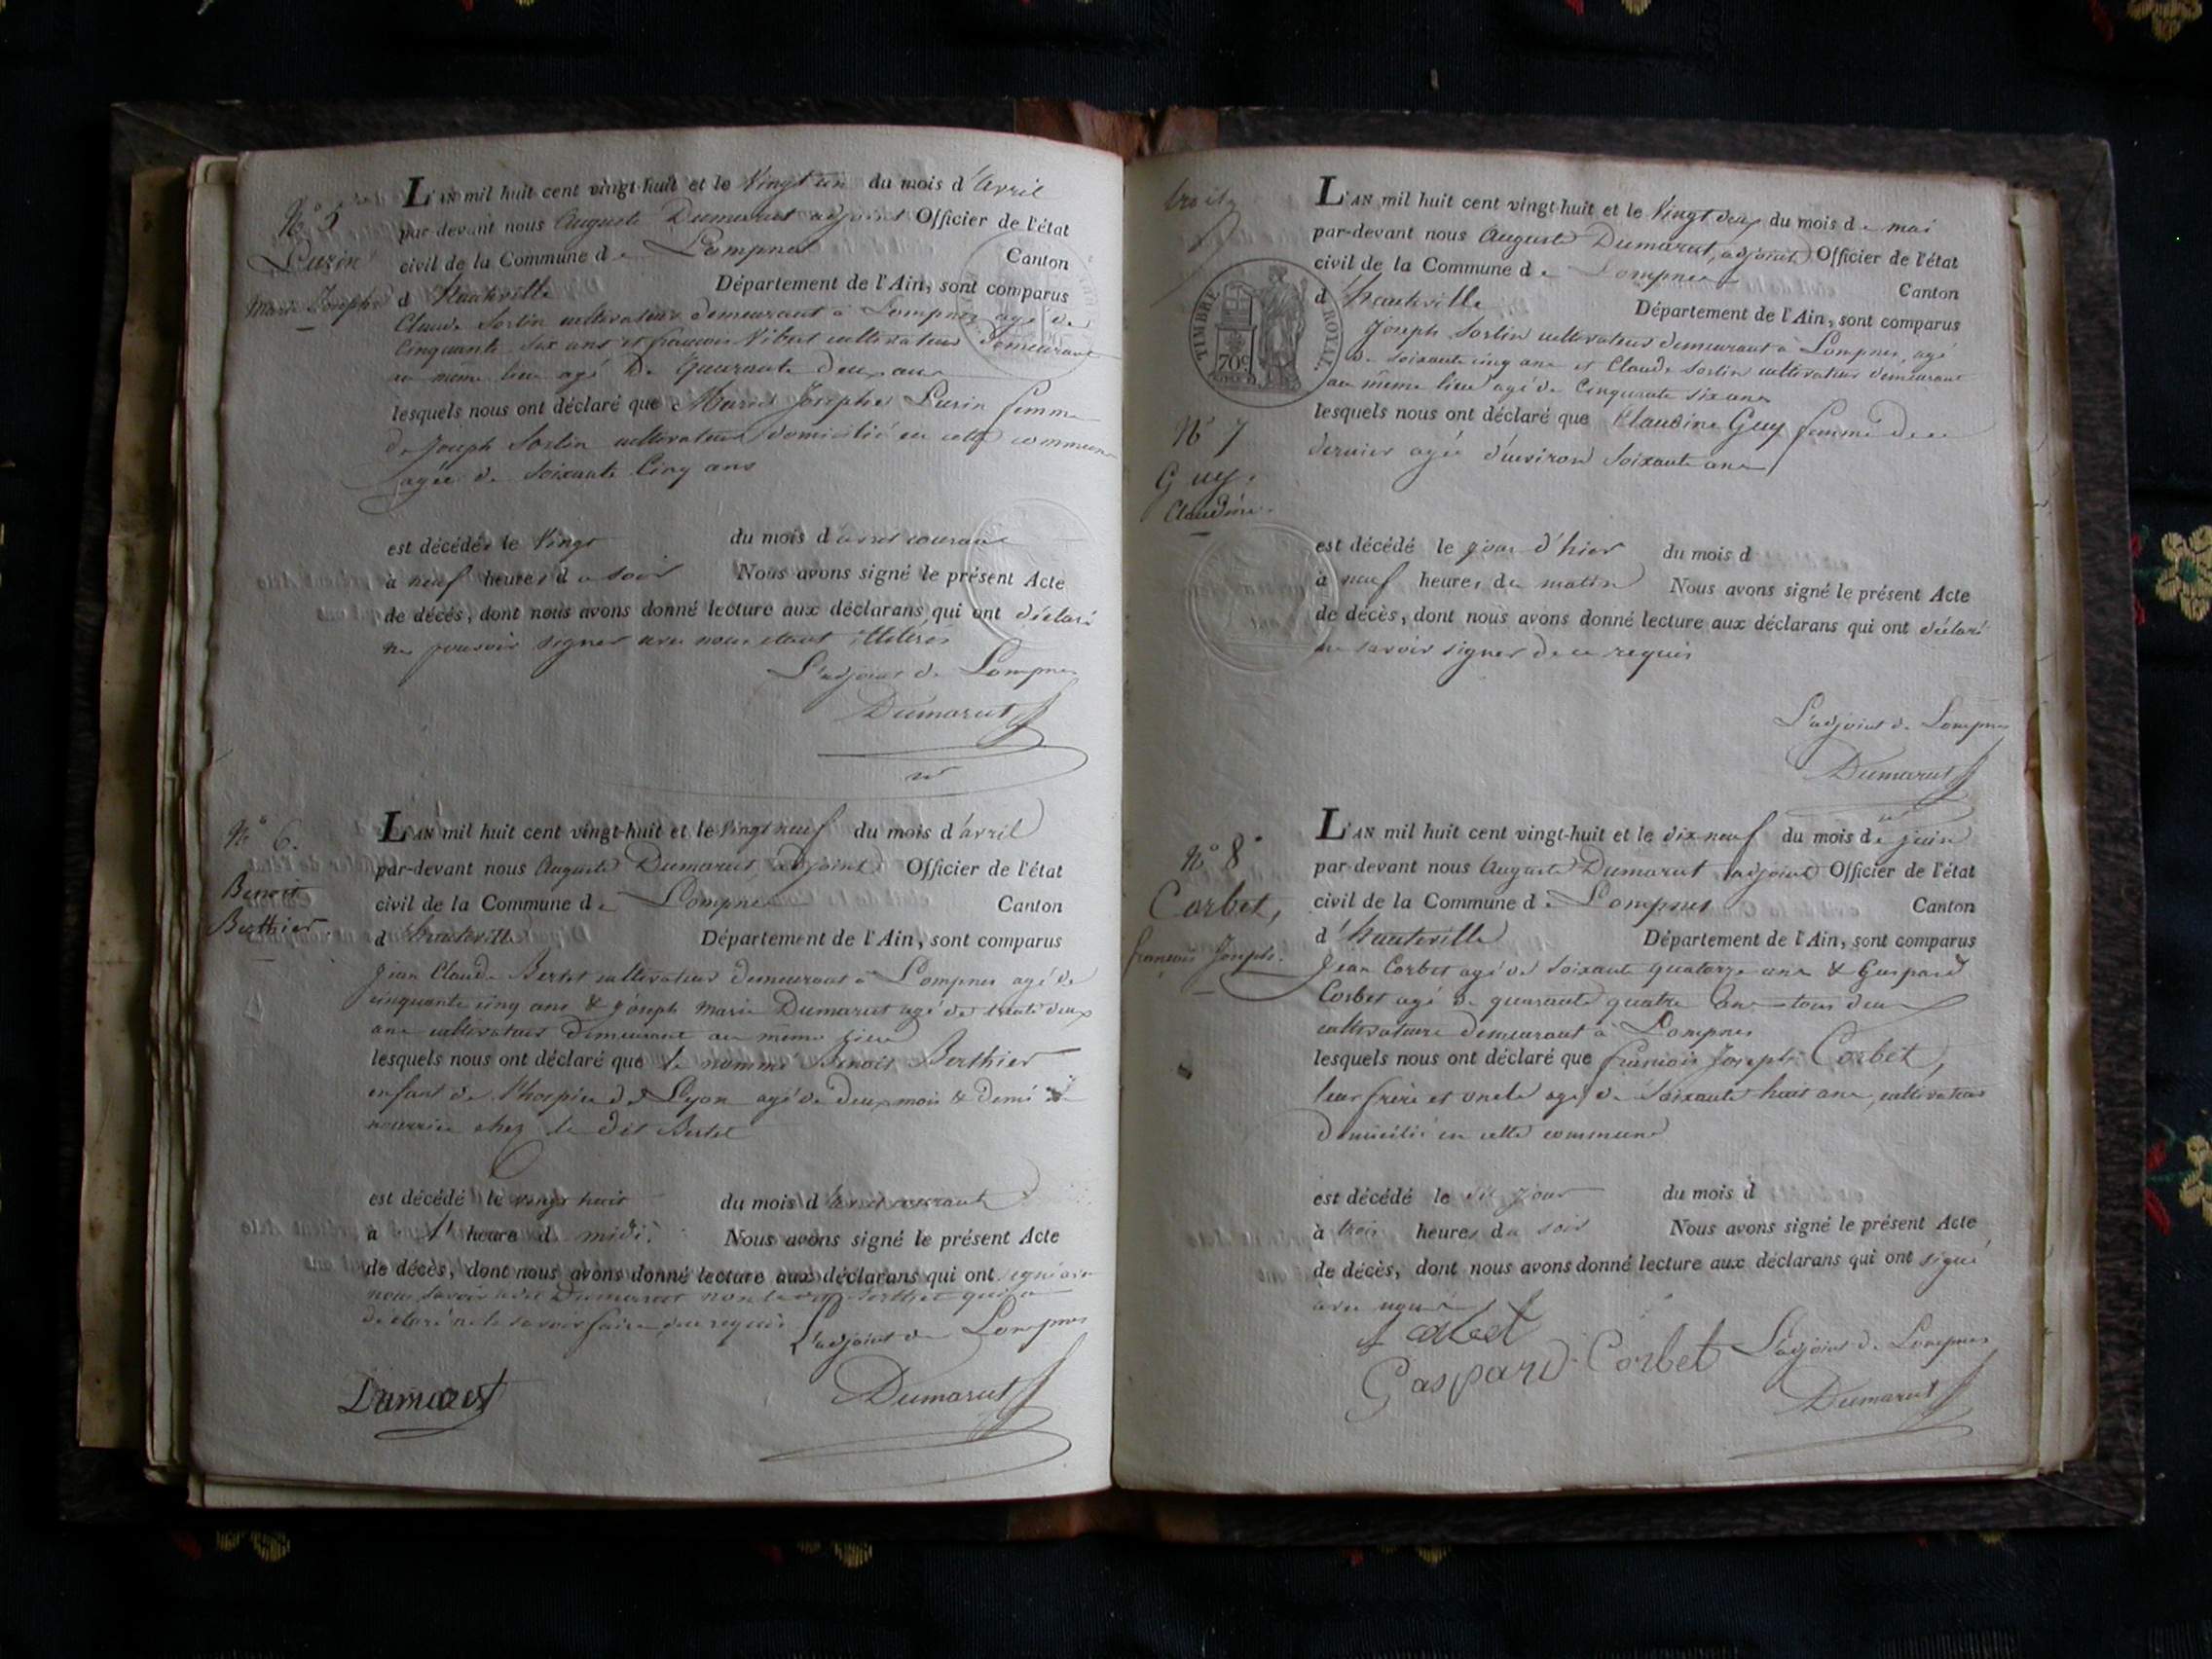 N° 5
Lurin
Marie Josephe
L'AN mil huit cent vingt-huit et le Vingt un du mois d'Avril
par-devant nous Auguste Dumarest adjoint Officier de l'état
civil de la Commune de Lompnes Canton
d'Hauteville Département de l'Ain, sont comparus
Claude Sorlin cultivateur demeurant à Lompnes agé de
Cinquante six ans et francois Vibert cultivateur demeurant
au meme lieu agé De Quarante deux ans
lesquels nous ont déclaré que Marie Josephe Lurin femme
de Joseph Sorlin cultivateur domicilié en cette commune
agée de Soixante Cinq ans
est décédée le Vingt du mois d'avril courant
à neuf heures du soir Nous avons signé le présent Acte
de décès, dont nous avons donné lecture aux déclarans qui ont déclaré
ne pouvoir signer avec nous etant illitérés
L'adjoint de Lompnes
Dumarest
N° 6.
Benoit
Berthier.
L'AN mil huit cent vingt-huit et le Vingt neuf du mois d'avril
par-devant nous Auguste Dumarest, adjoint Officier de l'état
civil de la Commune de Lompnes Canton
d'hauteville Département de l'Ain, sont comparus
Jean Claude Bertet cultivateur demeurant à Lompnes agé de
cinquante cinq ans & joseph Marie Dumarest agé de trente deux
ans cultivateur demeurant au meme lieu
lesquels nous ont déclaré que le nommé Benoit Berthier
enfant de l'hospice de Lyon agé de deux mois & demi en
nourrice chez le dit Bertet
est décédé le vingt huit du mois d'avril courant
à heure d midi. Nous avons signé le présent Acte
de décès, dont nous avons donné lecture aux déclarans qui ont signé avec
nous savoir ledit Dumarest non le dit qui a
déclaré ne le savoir faire de ce requis
L'adjoint de Lompnes
Dumarest
Dumarest
trois
TIMBRE ROYAL.
70c
N° 7
Guy.
Claudine.
L'AN mil huit cent vingt-huit et le Vingt deux du mois de mai
par-devant nous Auguste Dumarest, adjoint Officier de l'état
civil de la Commune de Lompnes Canton
d'hauteville Département de l'Ain, sont comparus
Joseph Sorlin cultivateur demeurant à Lompnes, agé
de soixante cinq ans et Claude Sorlin cultivateur demeurant
au même lieu agé de Cinquante six ans
lesquels nous ont déclaré que Claudine Guy femme de ce
dernier agée d'environ Soixante ans
est décédé le jour d'hier du mois d
à neuf heures du matin Nous avons signé le présent Acte
de décès, dont nous avons donné lecture aux déclarans qui ont déclaré
ne savoir signer de ce requis
L'adjoint de Lompnes
Dumarest
N° 8
Corbet,
francois Joseph.
L'AN mil huit cent vingt-huit et le dix neuf du mois de juin
par-devant nous Auguste Dumarest adjoint Officier de l'état
civil de la Commune de Lompnes Canton
d'hauteville Département de l'Ain, sont comparus
Jean Corbet agé de soixante quatorze ans & Gaspard
Corbet agé de quarante quatre ans tous deux
cultivateurs demeurant à Lompnes
lesquels nous ont déclaré que francois Joseph Corbet,
leur frère et oncle agé de Soixante huit ans, cultivateur
Domicilié en cette commune
est décédé le dit jour du mois d
à trois heures du soir Nous avons signé le présent Acte
de décès, dont nous avons donné lecture aux déclarans qui ont signé
avec nous
Gaspard Corbet
L'adjoint de Lompnes
Dumarest